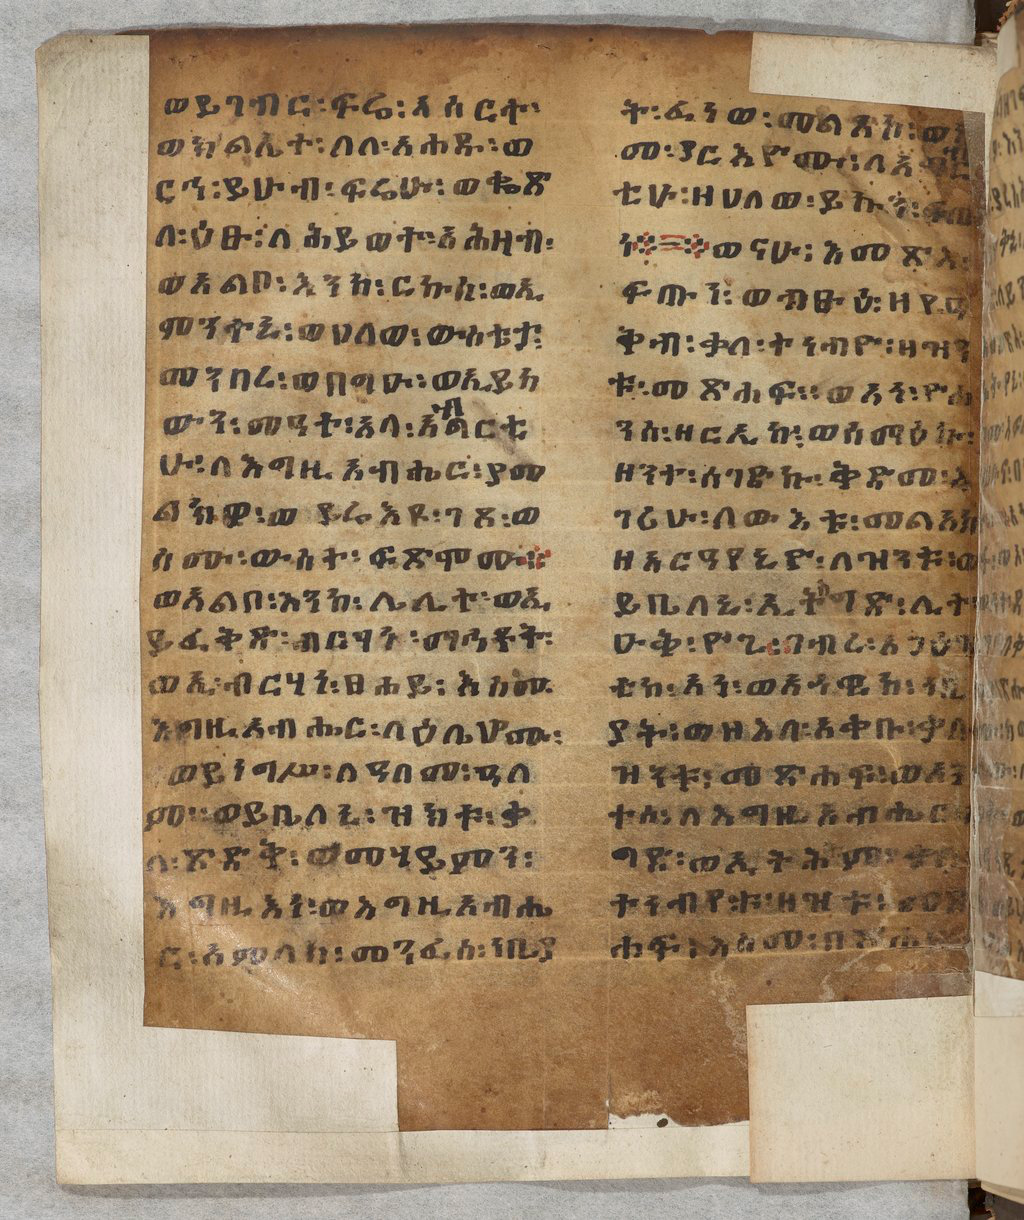 ወይገብር፡ፍሬ፡ ፩ ስርተ፡
ወክልኤተ፡ ለለ፡አሐዱ፡ ወ
ርኅ፡ ይሁብ፡ ፍሬሁ፡ ወቈጽ
ለ፡ ዕፁ፡ ለ ሕይወተ፡ አሕዛብ፡
ወአልቦ፡ እንከ፡ ርኩስ፡ ወኢ
ምንትኒ፡ ወሀለወ፡ ውስቴታ፡
መንበሩ፡ ወበግዑ፡ ወኢይከ
ውን፡ መዓተ፡ አላ፡ አግብርቲ
ሁ፡ ለ እግዚ አብሔር፡ ያመ
ልክዎ፡ ወ ይሬእዩ፡ ገጾ፡ ወ
ስሙ፡ ውስተ፡ ፍጽሞሙ፡፡
ወአልቦ፡ እንከ፡ ሌሊተ፡ ወኢ
ይፈቅዱ፡ ብርሃነ፡ ማኅቶት፡
ወኢ፡ ብርሃነ፡ ፀሐይ፡ እስመ
እግዚ አብሔር፡ ለዕሌሆሙ፡
ወይነግሥ፡ ለዓለመ፡ ዓለ
ም፡፡ ወይቤለኒ፡ ዝንቱ፡ ቃ
ል፡ ጽድቅ፡ ወመሃይምን፡
እግዚእነ፡ ወእግዚአብሔ
ር፡ አምላከ፡ መንፈስ፡ ነቢያ
ት፡ ፈነወ፡ መልአኮ፡
መ፡ ያርእዮሙ፡ ለአግብር
ቲሁ፡ ዘሀለወ፡ ይኩን፡
ን፡፡ ወናሁ፡ እመጽእ፡
ፍጡነ፡ ወብፁዕ፡ ዘየዓ
ቅብ፡ ቃለ፡ ትንብዮ፡ ዘዝን
ቱ፡ መጽሐፍ፡፡ ወአነ፡ ዮሐ
ንስ፡ ዘርኢኩ፡ ወሰማዕኩ፡
ዘንተ፡ ሰገድኩ፡ ቅድመ፡
ገሪሁ፡ ለውእቱ፡ መልአክ
ዘአርዓየኒዮ፡ ለዝንቱ፡
ይቤለኒ፡ ኢትግድ፡ ሊተ
ዑቅ፡ ዮጊ፡ ገብሩ፡ አንዕን
ቲከ፡ አነ፡ ወአኀዊከ፡ ነቢ
ያት፡ ወዘእለ፡ አቀቡ፡ ቃለ
ዝንቱ፡ መጽሐፍ፡ ወአን
ተሰ፡ ለእግዚ አብሔር
ግድ፡ ወኢትሕም፡
ትንብየቱ፡ ዘዝቱ፡ መጽ
ሐፍ፡ እስመ፡